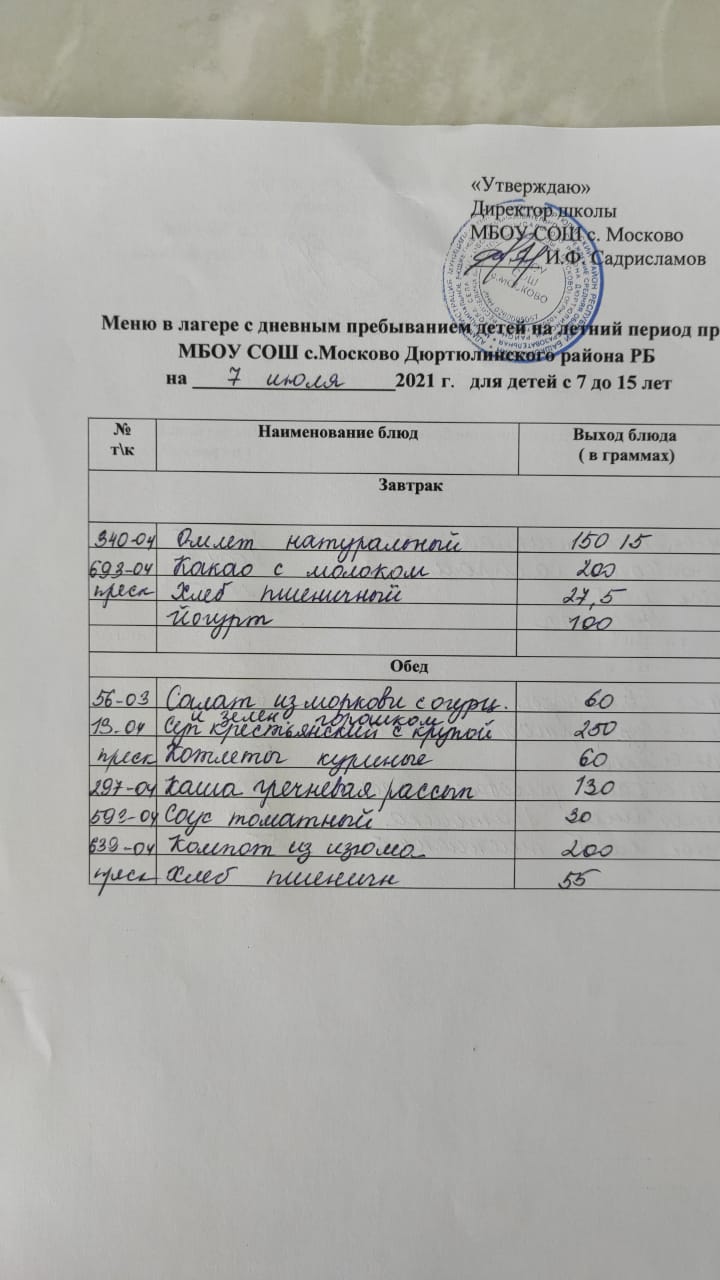 «Утверждаю»
Директор школы
МБОУ СОШ с. Москово
И.Ф. Садрисламов
Меню в лагере с дневным пребыванием детей на летний период пр
МБОУ СОШ с.Москово Дюртюлинского района РБ
на 7 июля 2021 г. для детей с 7 до 15 лет
№ т\к Наименование блюд Выход блюда ( в граммах)
Завтрак
340-04 Омлет натуральный 150 15
693-04 Какао с молоком 200
преск Хлеб пшеничный 27,5
Йогурт 100
Обед
56-03 Салат из моркови с огурц. 60
и зелен горошком
13-04 Суп крестьянский с крупой 250
преск Котлеты куриные 60
297-04 Каша гречневая рассып 130
593-04 Соус томатный 30
639-04 Компот из изюма 200
преск Хлеб пшеничн 55